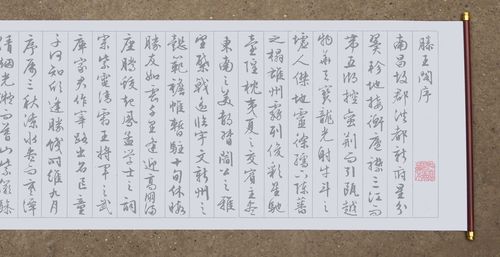 滕王閣序
南昌故郡洪都新府星分
翼軫地接衡廬襟三江而
帶五湖控蠻荊而引甌越
物華天寶龍光射牛斗之
墟人傑地靈徐孺下陳蕃
之榻雄州霧列俊彩星馳
臺隍枕夷夏之交賓主盡
東南之美都督閻公之雅
望棨戟遙臨宇文新州之
懿範襜帷暫駐十旬休暇
勝友如雲千里逢迎高朋滿
座騰蛟起鳳孟學士之詞
宗紫電清霜王將軍之武
庫家君作宰路出名區童
子何知躬逢勝餞時維九月
序屬三秋潦水盡而寒潭
清煙光凝而暮山紫儼驂